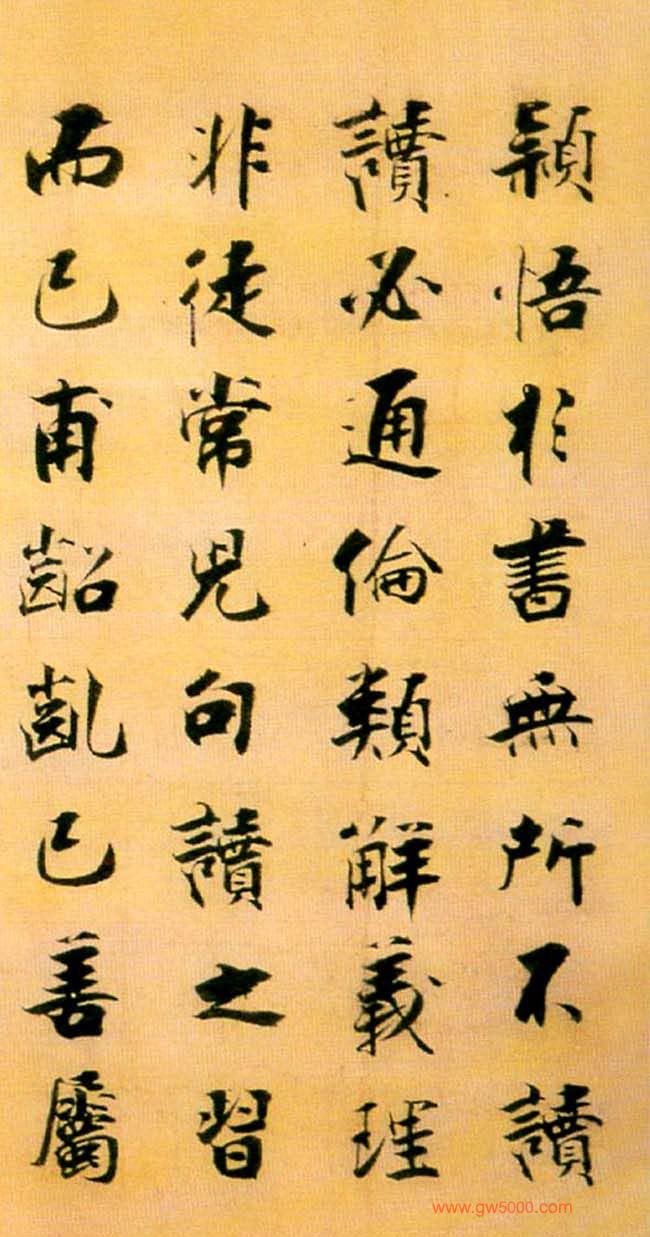 穎悟於書無所不讀
讀必通倫類解義理
非徒常兒句讀之習
而已甫齠齓已善屬
www.gw5000.com